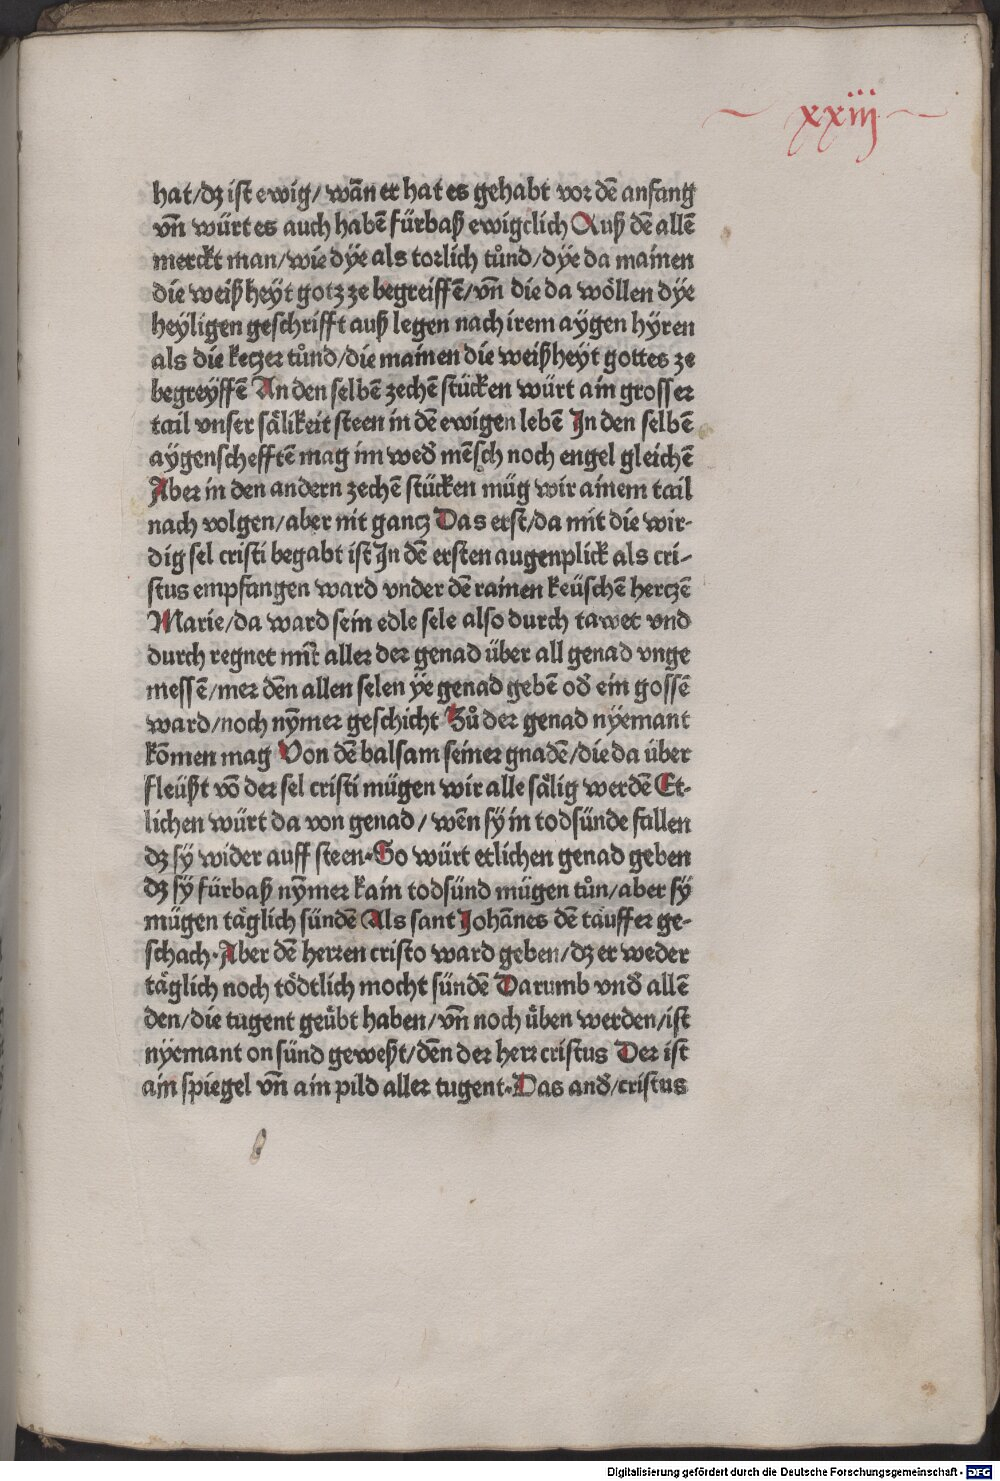 xxiij
hat/dz ist ewig/ wãn er hat es gehabt vor dẽ anfang
vñ würt es auch habẽ fürbaß ewigclich Auß dẽ allẽ
merckt man/wie dÿe als torlich tůnd/dÿe da mainen
die weißheÿt gotz ze begreiffẽ/vñ die da wöllen dÿe
heÿligen geschrifft auß legen nach irem aÿgen hÿren
als die ketzer tůnd/die mainen die weißheÿt gottes ze
begreÿffẽ An den selbẽ zechẽ stücken würt ain grosser
tail vnser sälikeit steen in dẽ ewigen lebẽ In den selbẽ
aÿgenschefftẽ mag im wed' mẽsch noch engel gleichẽ
Aber in den andern zechẽ stücken müg wir ainem tail
nach volgen/aber nit gancz Das erst/da mit die wir-
dig sel cristi begabt ist In dẽ ersten augenplick als cri-
stus empfangen ward vnder dẽ rainen keüschẽ herczẽ
Marie/da ward sein edle sele also durch tawet vnd
durch regnet mit̃ aller der genad über all genad vnge
messẽ/mer dẽn allen selen ÿe genad gebẽ od' ein gossẽ
ward/noch nÿm̃er geschicht Zů der genad nÿemant
kõmen mag Von dẽ balsam seiner gnadẽ/die da über
fleüßt võ der sel cristi mügen wir alle sälig werdẽ Et-
lichen würt da von genad/ wẽn sÿ in todsünde fallen
dz sÿ wider auff steen·So würt etlichen genad geben
dz sÿ fürbaß nÿm̃er kain todsünd mügen tůn/aber sÿ
mügen täglich sündẽ Als sant Johãnes dẽ tauffer ge-
schach·Aber dẽ herren cristo ward geben/dz er weder
täglich noch tödtlich mocht sündẽ Darumb vnd' allẽ
den/die tugent geübt haben/vñ noch üben werden/ist
nÿemant on sünd geweßt/dẽn der herr cristus Der ist
ain spiegel vñ ain pild aller tugent·Das and'/cristus
Digitalisierung gefördert durch die Deutsche Forschungsgemeinschaft - DFG